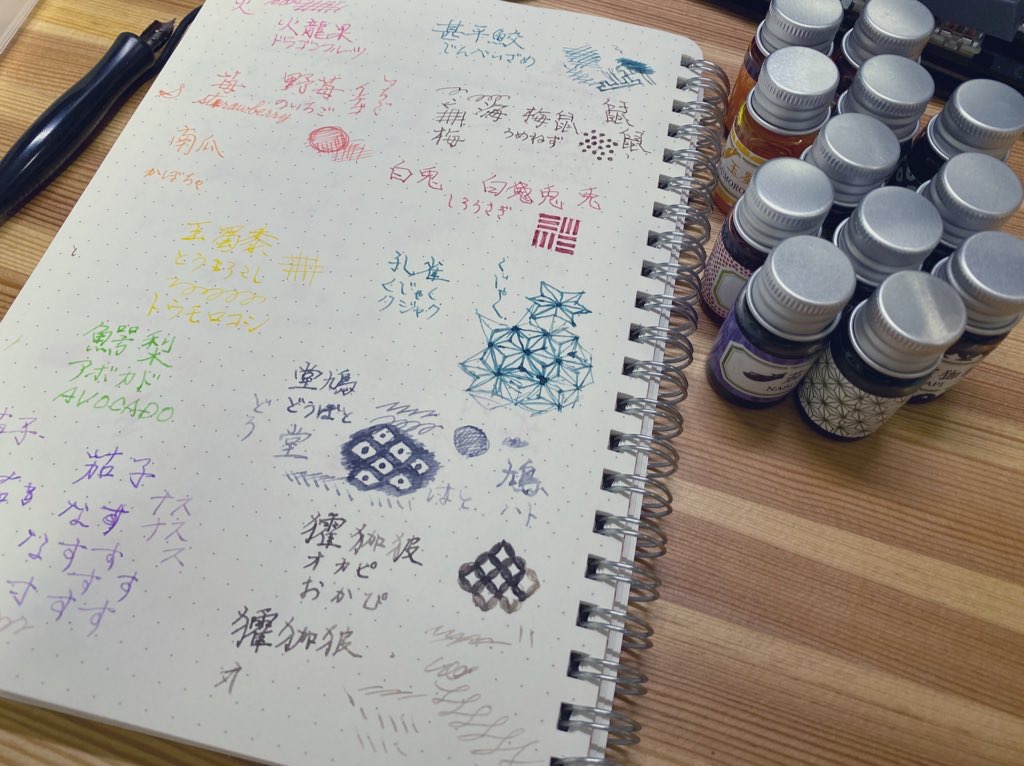 火
火龍果
ドラゴンフルーツ
苺 野苺 イチゴ
のいちご
Strawberry
南瓜
かぼちゃ
玉蜀黍
とうもろこし
トウモロコシ
鰐梨
アボカド
AVOCADO
茄子
なす ナス
なすす ナス
す す す ス
甚平鮫
じんべいざめ
海 梅鼠 鼠
梅 うめねず 鼠
白兎 白兎兎
しろうさぎ
孔雀
くじゃく
クジャク
くじゃく
堂鳩
どうばと
どう 堂
鳩
はと ハト
獾㹢狓
オカピ
おかぴ
獾㹢狓
オ